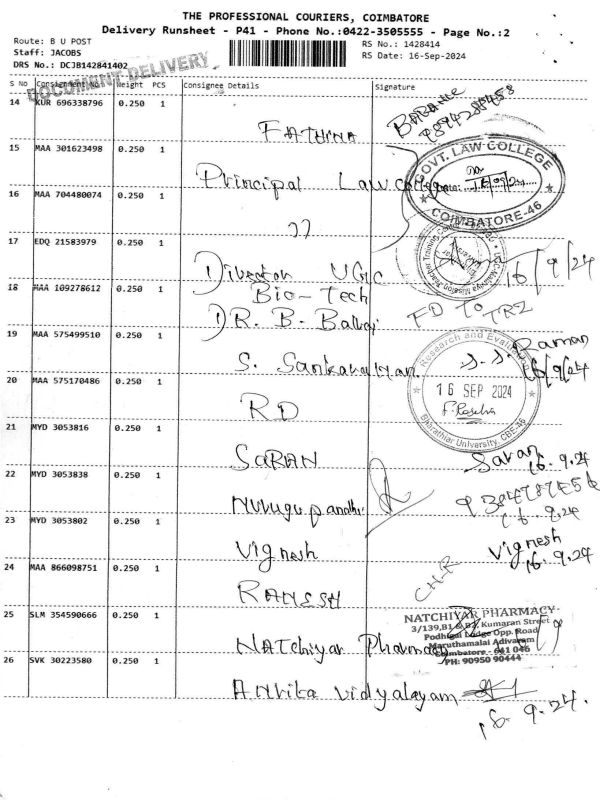 THE PROFESSIONAL COURIERS, COIMBATORE
Delivery Runsheet - P41 - Phone No.:0422-3505555 - Page No.:2
Route: B U POST
Staff: JACOBS
DRS No.: DCJB142841402
RS No.: 1428414
RS Date: 16-Sep-2024
DOCUMENT DELIVERY
S NO Consignment No. Weight PCS Consignee Details Signature
14 KUR 696338796 0.250 1
FATHIMA
15 MAA 301623498 0.250 1
Principal Law college
GOVT. LAW COLLEGE
COIMBATORE-46
16 MAA 704480074 0.250 1
17 EDQ 21583979 0.250 1
Director UGC
16/9/24
18 MAA 109278612 0.250 1
Bio-Tech
DR. B. Balaji
FD TO TRZ
19 MAA 575499510 0.250 1
Raman
16/9/24
Research and Evaluation
16 SEP 2024
Bharathiar University, CBE-46
20 MAA 575170486 0.250 1
RD
21 MYD 3053816 0.250 1
SARAN
Saran
16.9.24
22 MYD 3053838 0.250 1
16.9.24
23 MYD 3053802 0.250 1
Vignesh
Vignesh
16.9.24
24 MAA 866098751 0.250 1
RAMESH
25 SLM 354590666 0.250 1
NATchiyar Pharmacy
NATCHIYAR PHARMACY
3/139,B1 & B2, Kumaran Street
Podhigai Lodge Opp. Road
Maruthamalai Adivaram
Coimbatore - 641 046
PH: 90950 90444
26 SVK 30223580 0.250 1
Anvita vidyalayam
16.9.24.